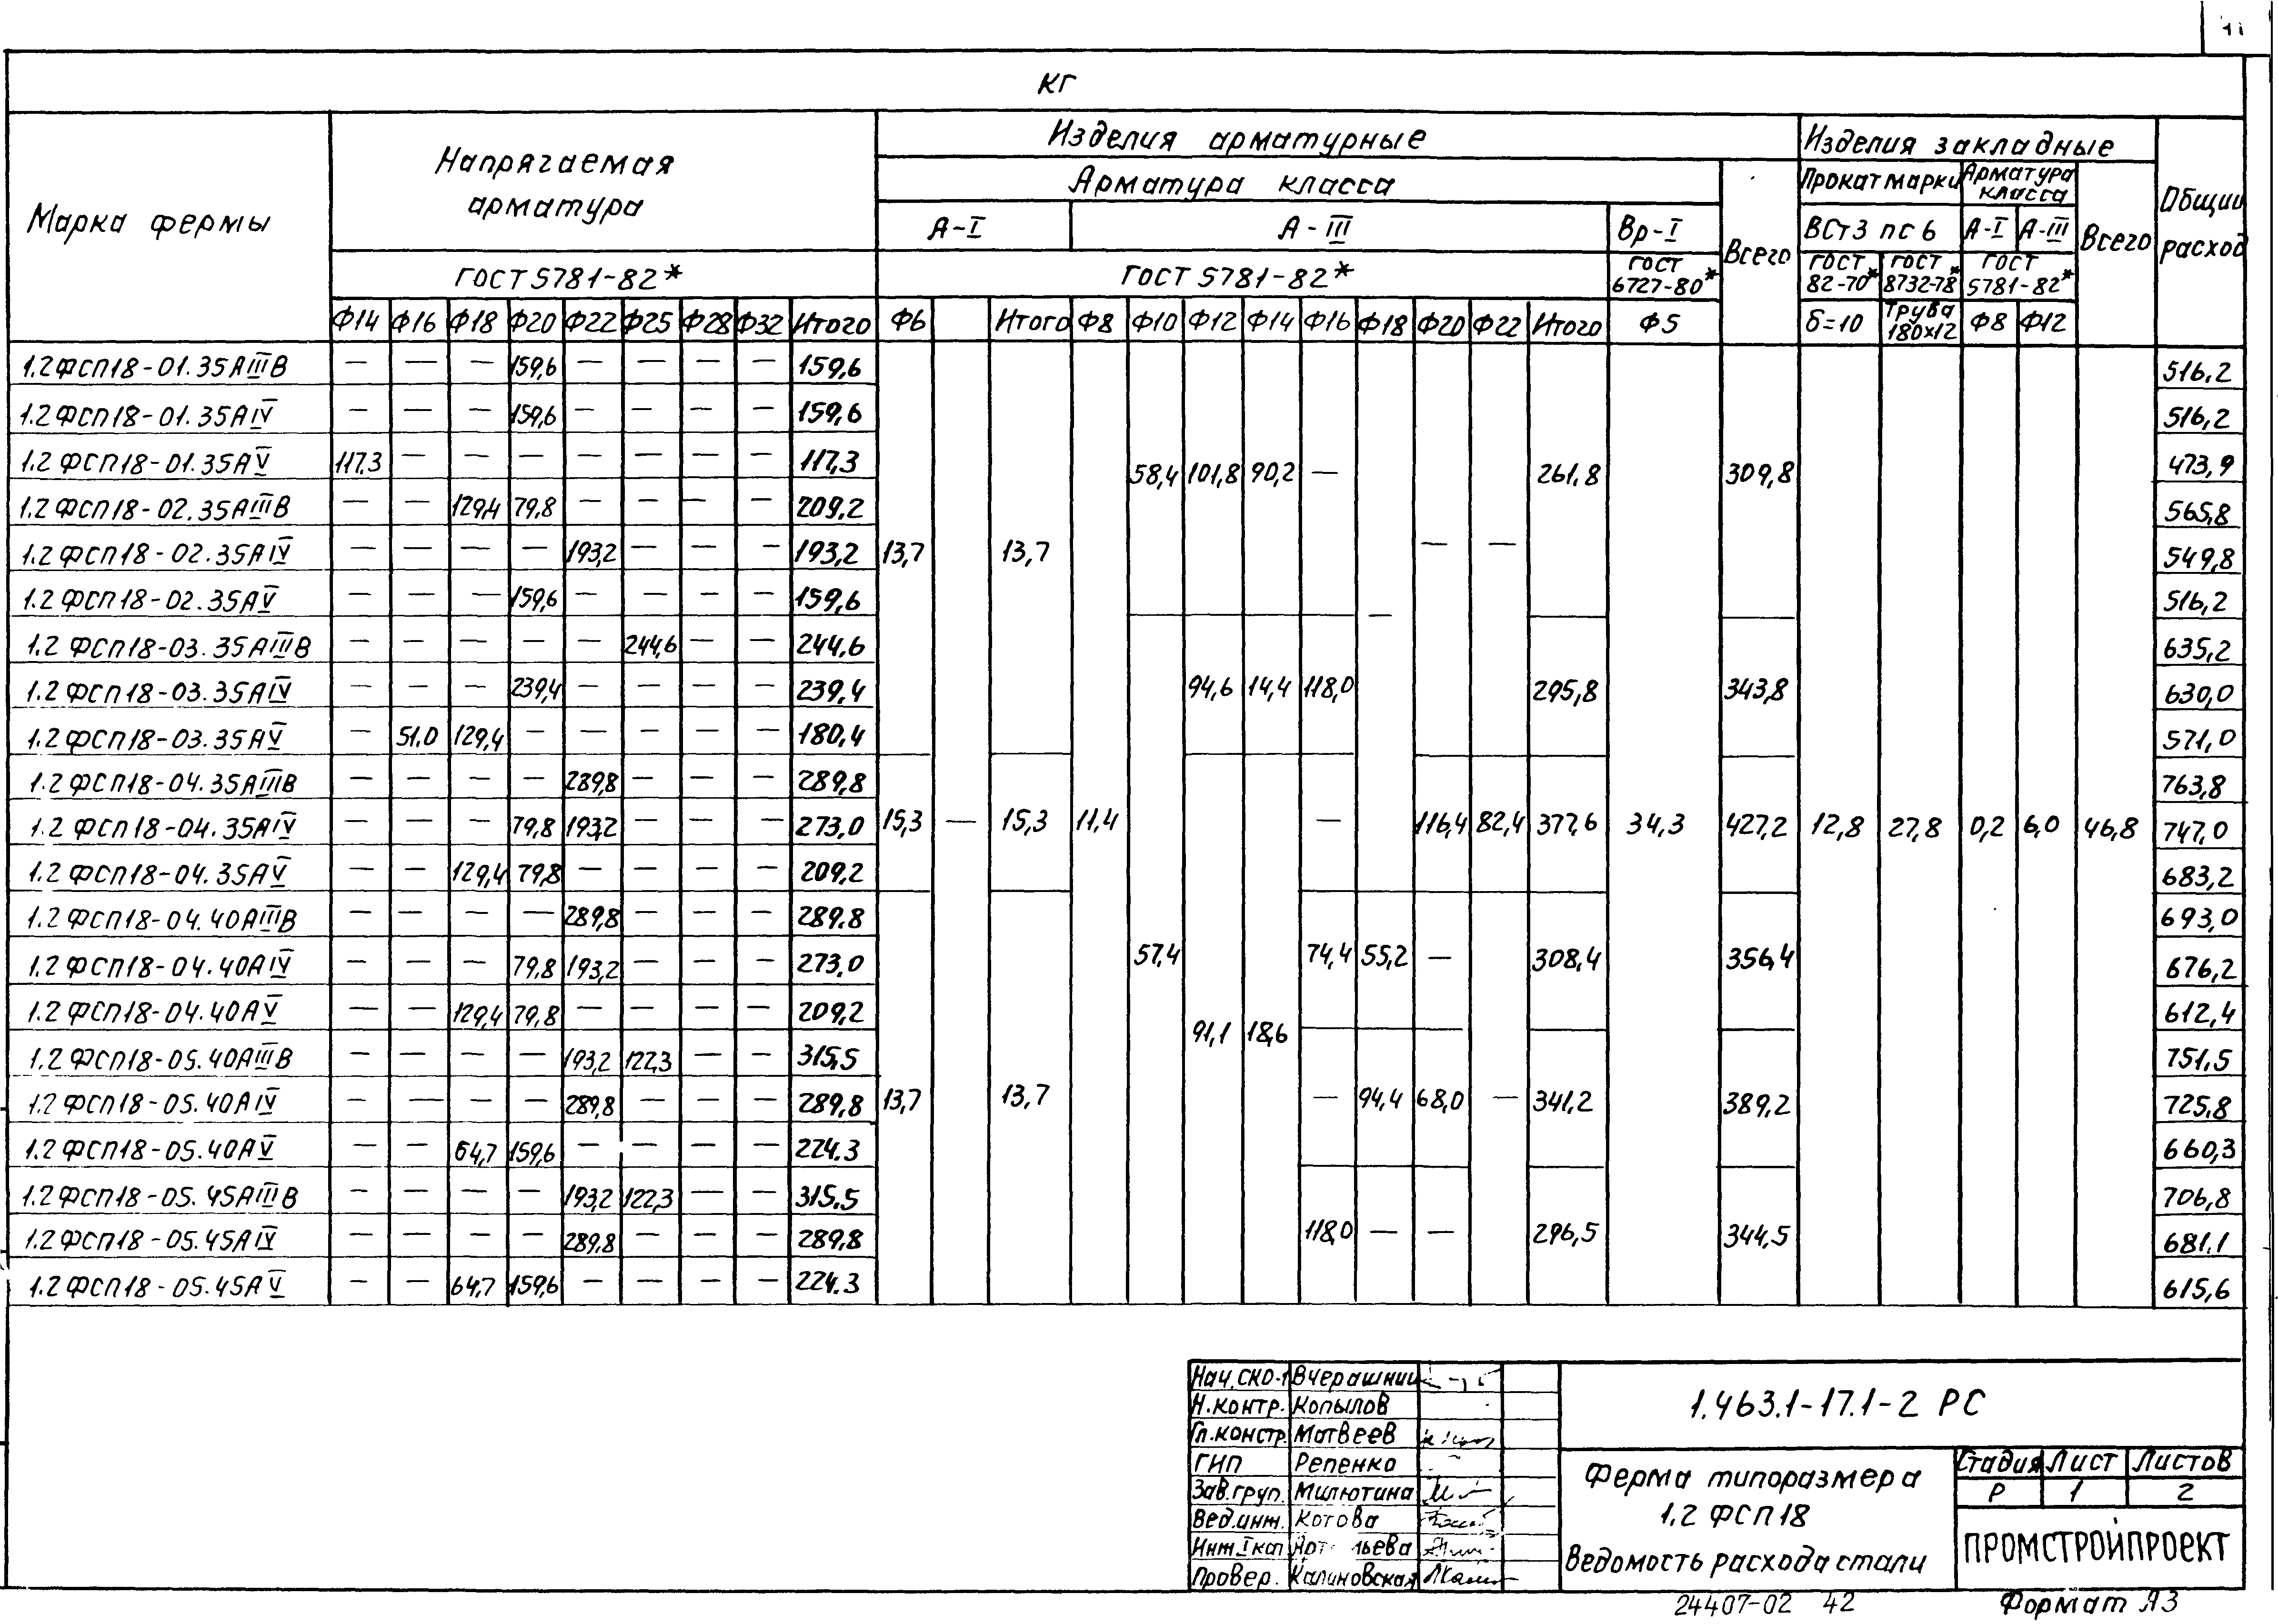 кг
Марка фермы
Напрягаемая арматура
Изделия арматурные
Изделия закладные
Общий расход
Арматура класса
Всего
Прокат марки
Арматура класса
Всего
А-I
А-III
Вр-I
ВСт3 пс6
А-I
А-III
ГОСТ 5781-82*
ГОСТ 5781-82*
ГОСТ 6727-80*
ГОСТ 82-70*
ГОСТ 8732-78*
ГОСТ 5781-82*
Ф14 Ф16 Ф18 Ф20 Ф22 Ф25 Ф28 Ф32 Итого Ф6 Итого Ф8 Ф10 Ф12 Ф14 Ф16 Ф18 Ф20 Ф22 Итого Ф5 δ=10 Труба 180х12 Ф8 Ф12
1.2ФСП18-01.35АIIIВ — — — 159,6 — — — — 159,6 516,2
1.2ФСП18-01.35АIV — — — 159,6 — — — — 159,6 516,2
1.2ФСП18-01.35АV 117,3 — — — — — — — 117,3 58,4 101,8 90,2 — 261,8 309,8 473,9
1.2ФСП18-02.35АIIIВ — — 129,4 79,8 — — — — 209,2 565,8
1.2ФСП18-02.35АIV — — — — 193,2 — — — 193,2 13,7 13,7 — — 549,8
1.2ФСП18-02.35АV — — — 159,6 — — — — 159,6 — 516,2
1.2ФСП18-03.35АIIIВ — — — — — 244,6 — — 244,6 635,2
1.2ФСП18-03.35АIV — — — 239,4 — — — — 239,4 94,6 14,4 118,0 295,8 343,8 630,0
1.2ФСП18-03.35АV — 51.0 129,4 — — — — — 180,4 571,0
1.2ФСП18-04.35АIIIВ — — — — 289,8 — — — 289,8 763,8
1.2ФСП18-04.35АIV — — — 79,8 193,2 — — — 273,0 15,3 — 15,3 11,4 — 116,4 82,4 377,6 34,3 427,2 12,8 27,8 0,2 6,0 46,8 747,0
1.2ФСП18-04.35АV — — 129,4 79,8 — — — — 209,2 683,2
1.2ФСП18-04.40АIIIВ — — — — 289,8 — — — 289,8 693,0
1.2ФСП18-04.40АIV — — — 79,8 193,2 — — — 273,0 57,4 74,4 55,2 — 308,4 356,4 676,2
1.2ФСП18-04.40АV — — 129,4 79,8 — — — — 209,2 91,1 18,6 612,4
1.2ФСП18-05.40АIIIВ — — — — 193,2 122,3 — — 315,5 751,5
1.2ФСП18-05.40АIV — — — — 289,8 — — — 289,8 13,7 13,7 — 94,4 68,0 — 341,2 389,2 725,8
1.2ФСП18-05.40АV — — 64,7 159,6 — — — — 224.3 660,3
1.2ФСП18-05.45АIIIВ — — — — 193,2 122,3 — — 315.5 706,8
1.2ФСП18-05.45АIV — — — — 289,8 — — — 289,8 118,0 — — 296,5 344,5 681.1
1.2ФСП18-05.45АV — — 64,7 159,6 — — — — 224.3 615,6
Нач.СКО-1 Вчерашний
Н.контр. Копылов
Гл.констр. Матвеев
ГИП Репенко
Зав.груп. Милютина
Вед.инж. Котова
Инж.I кат
Провер. Калиновская
1.463.1-17.1-2 РС
Ферма типоразмера
1.2 ФСП18
Ведомость расхода стали
Стадия Лист Листов
Р 1 2
ПРОМСТРОЙПРОЕКТ
24407-02 42
Формат А3